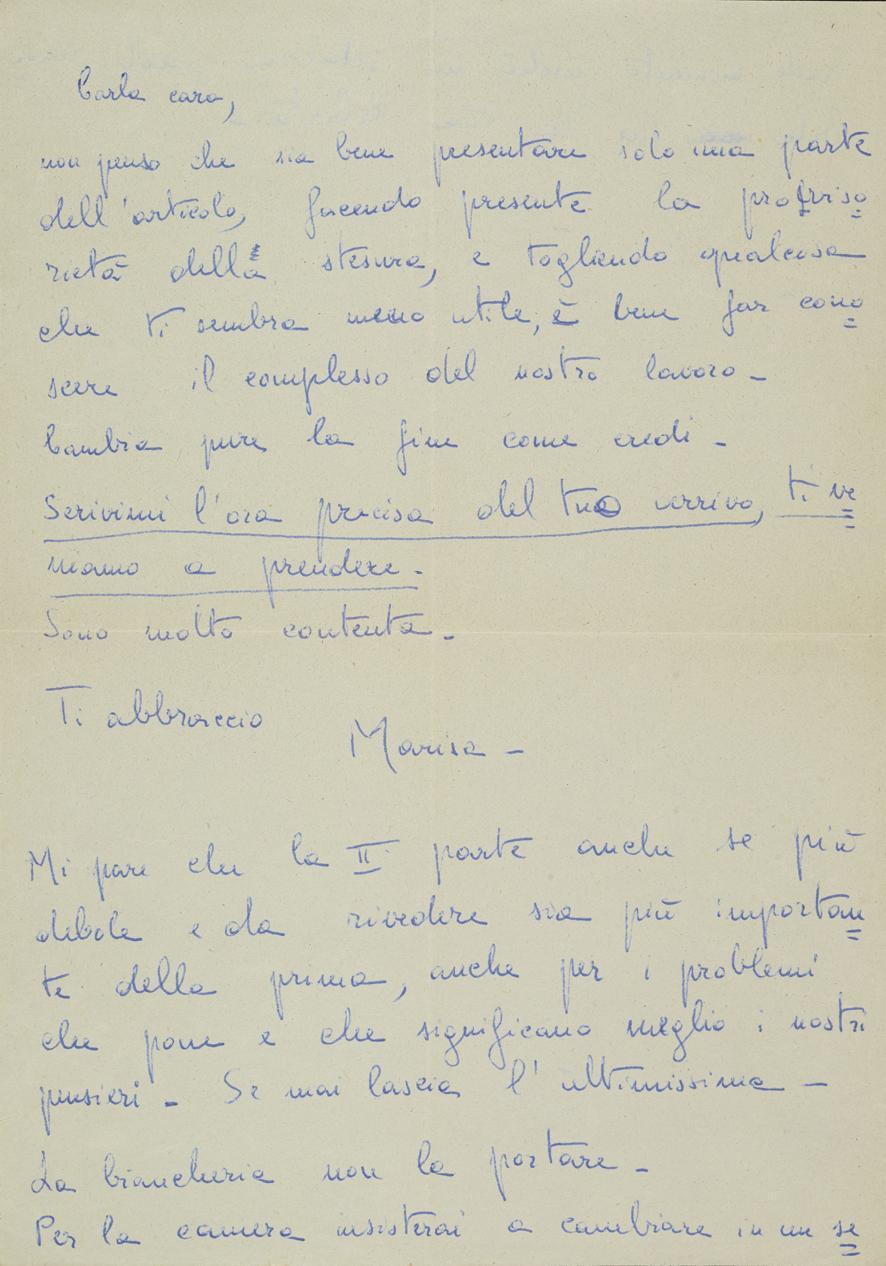 Carla cara,
non penso che sia bene presentare solo una parte
dell'articolo, facendo presente la provviso=
rietà della stesura, e togliendo qualcosa
che ti sembra meno utile, è bene far cono=
scere il complesso del nostro lavoro -
Cambia pure la fine come credi -
Scrivimi l'ora precisa del tuo arrivo, ti ve=
niamo a prendere -
Sono molto contenta -
Ti abbraccio
Marisa -
Mi pare che la II parte anche se più
debole e da rivedere sia più importan=
te della prima, anche per i problemi
che pone e che significano meglio i nostri
pensieri - Se mai lascia l'ultimissima -
La biancheria non la portare -
Per la camera insisterai a cambiare in un se=